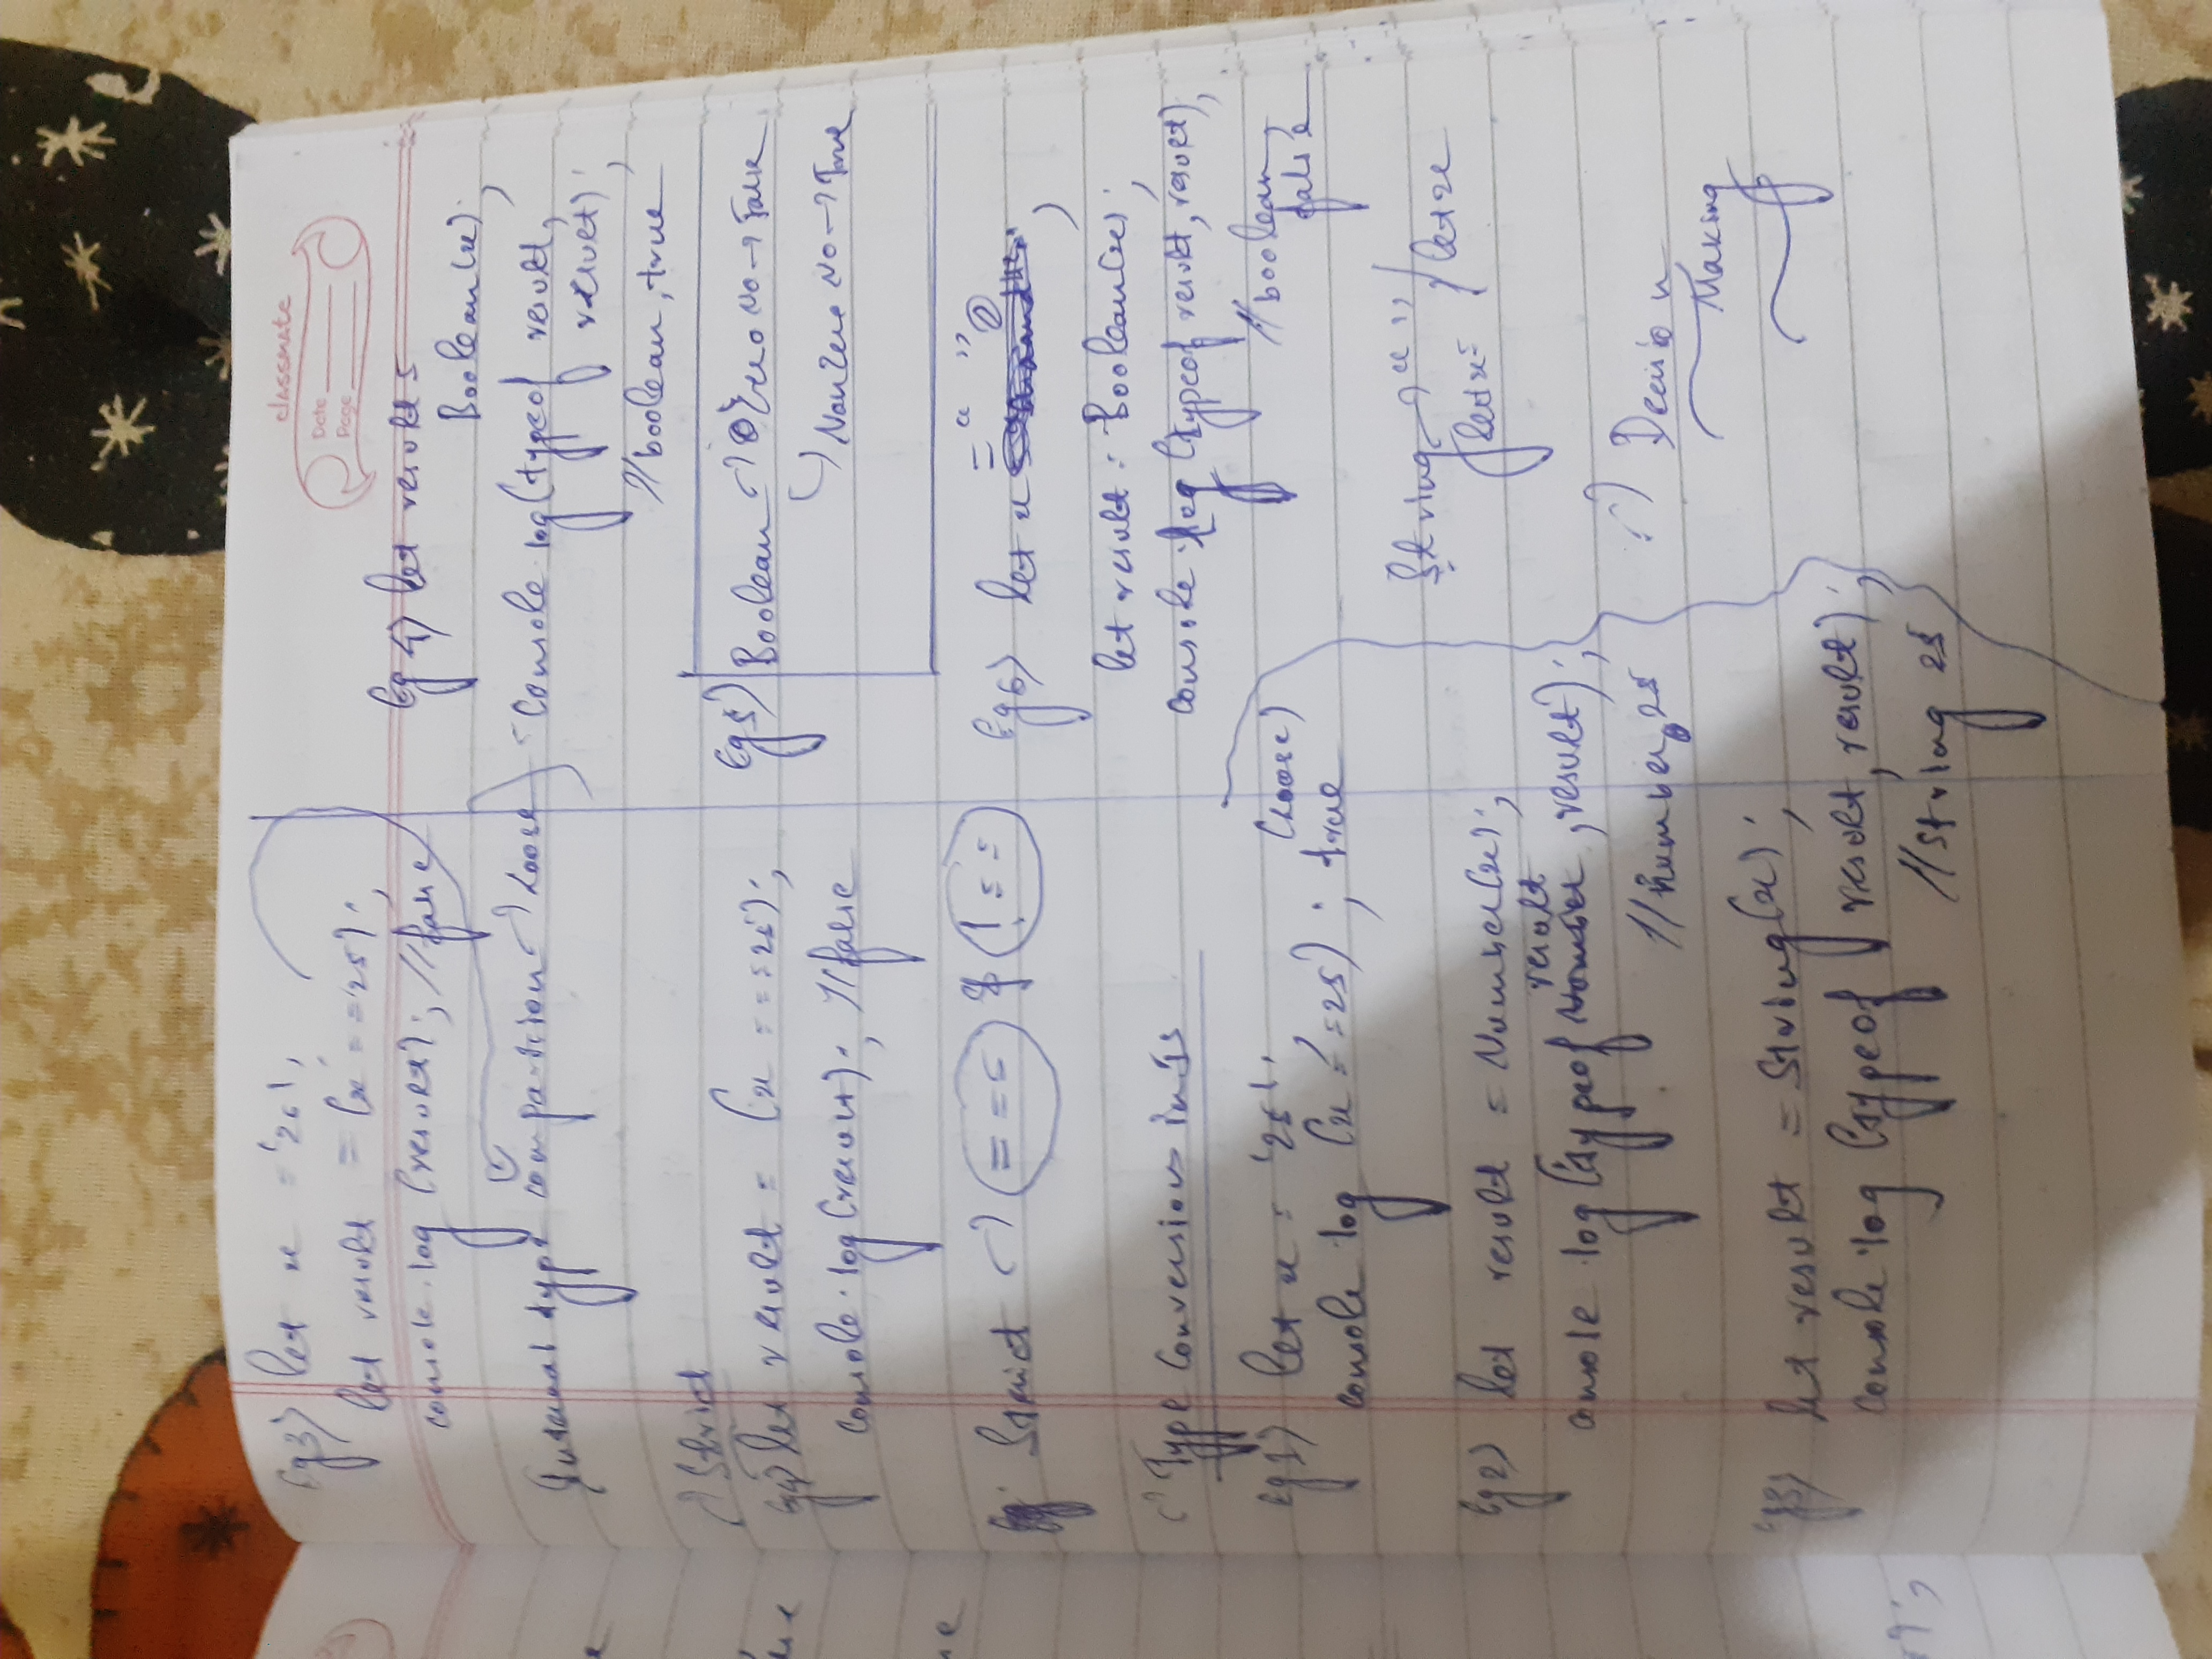 Eg3) let x = '26';
let result = (x == 25);
console.log (result); //false
Internal type compartision → Loose
→ Strict
Eg4) let result = (x === 25);
console.log(result); //false
Strict → === & !==
→ Type Conversions in Js
Eg1) let x = '25';
(Loose)
console log (x == 25); true
Eg2) let result = Number(x);
result
console log (typeof Number, result);
//number, 25
Eg3) let result = String(x);
console.log (typeof result, result);
//string 25
classmate
Date
Page
Eg 4) let result =
Boolean(x);
console.log(typeof result,
result);
//boolean, true
Eg5) Boolean → Zero No → False
↳ NonZero No → True
= " "
Eg6) let x ;
let result = Boolean(x);
console.log (typeof result, result);
//boolean,
false
String → " " / let x
let x =
→ Decision
Making